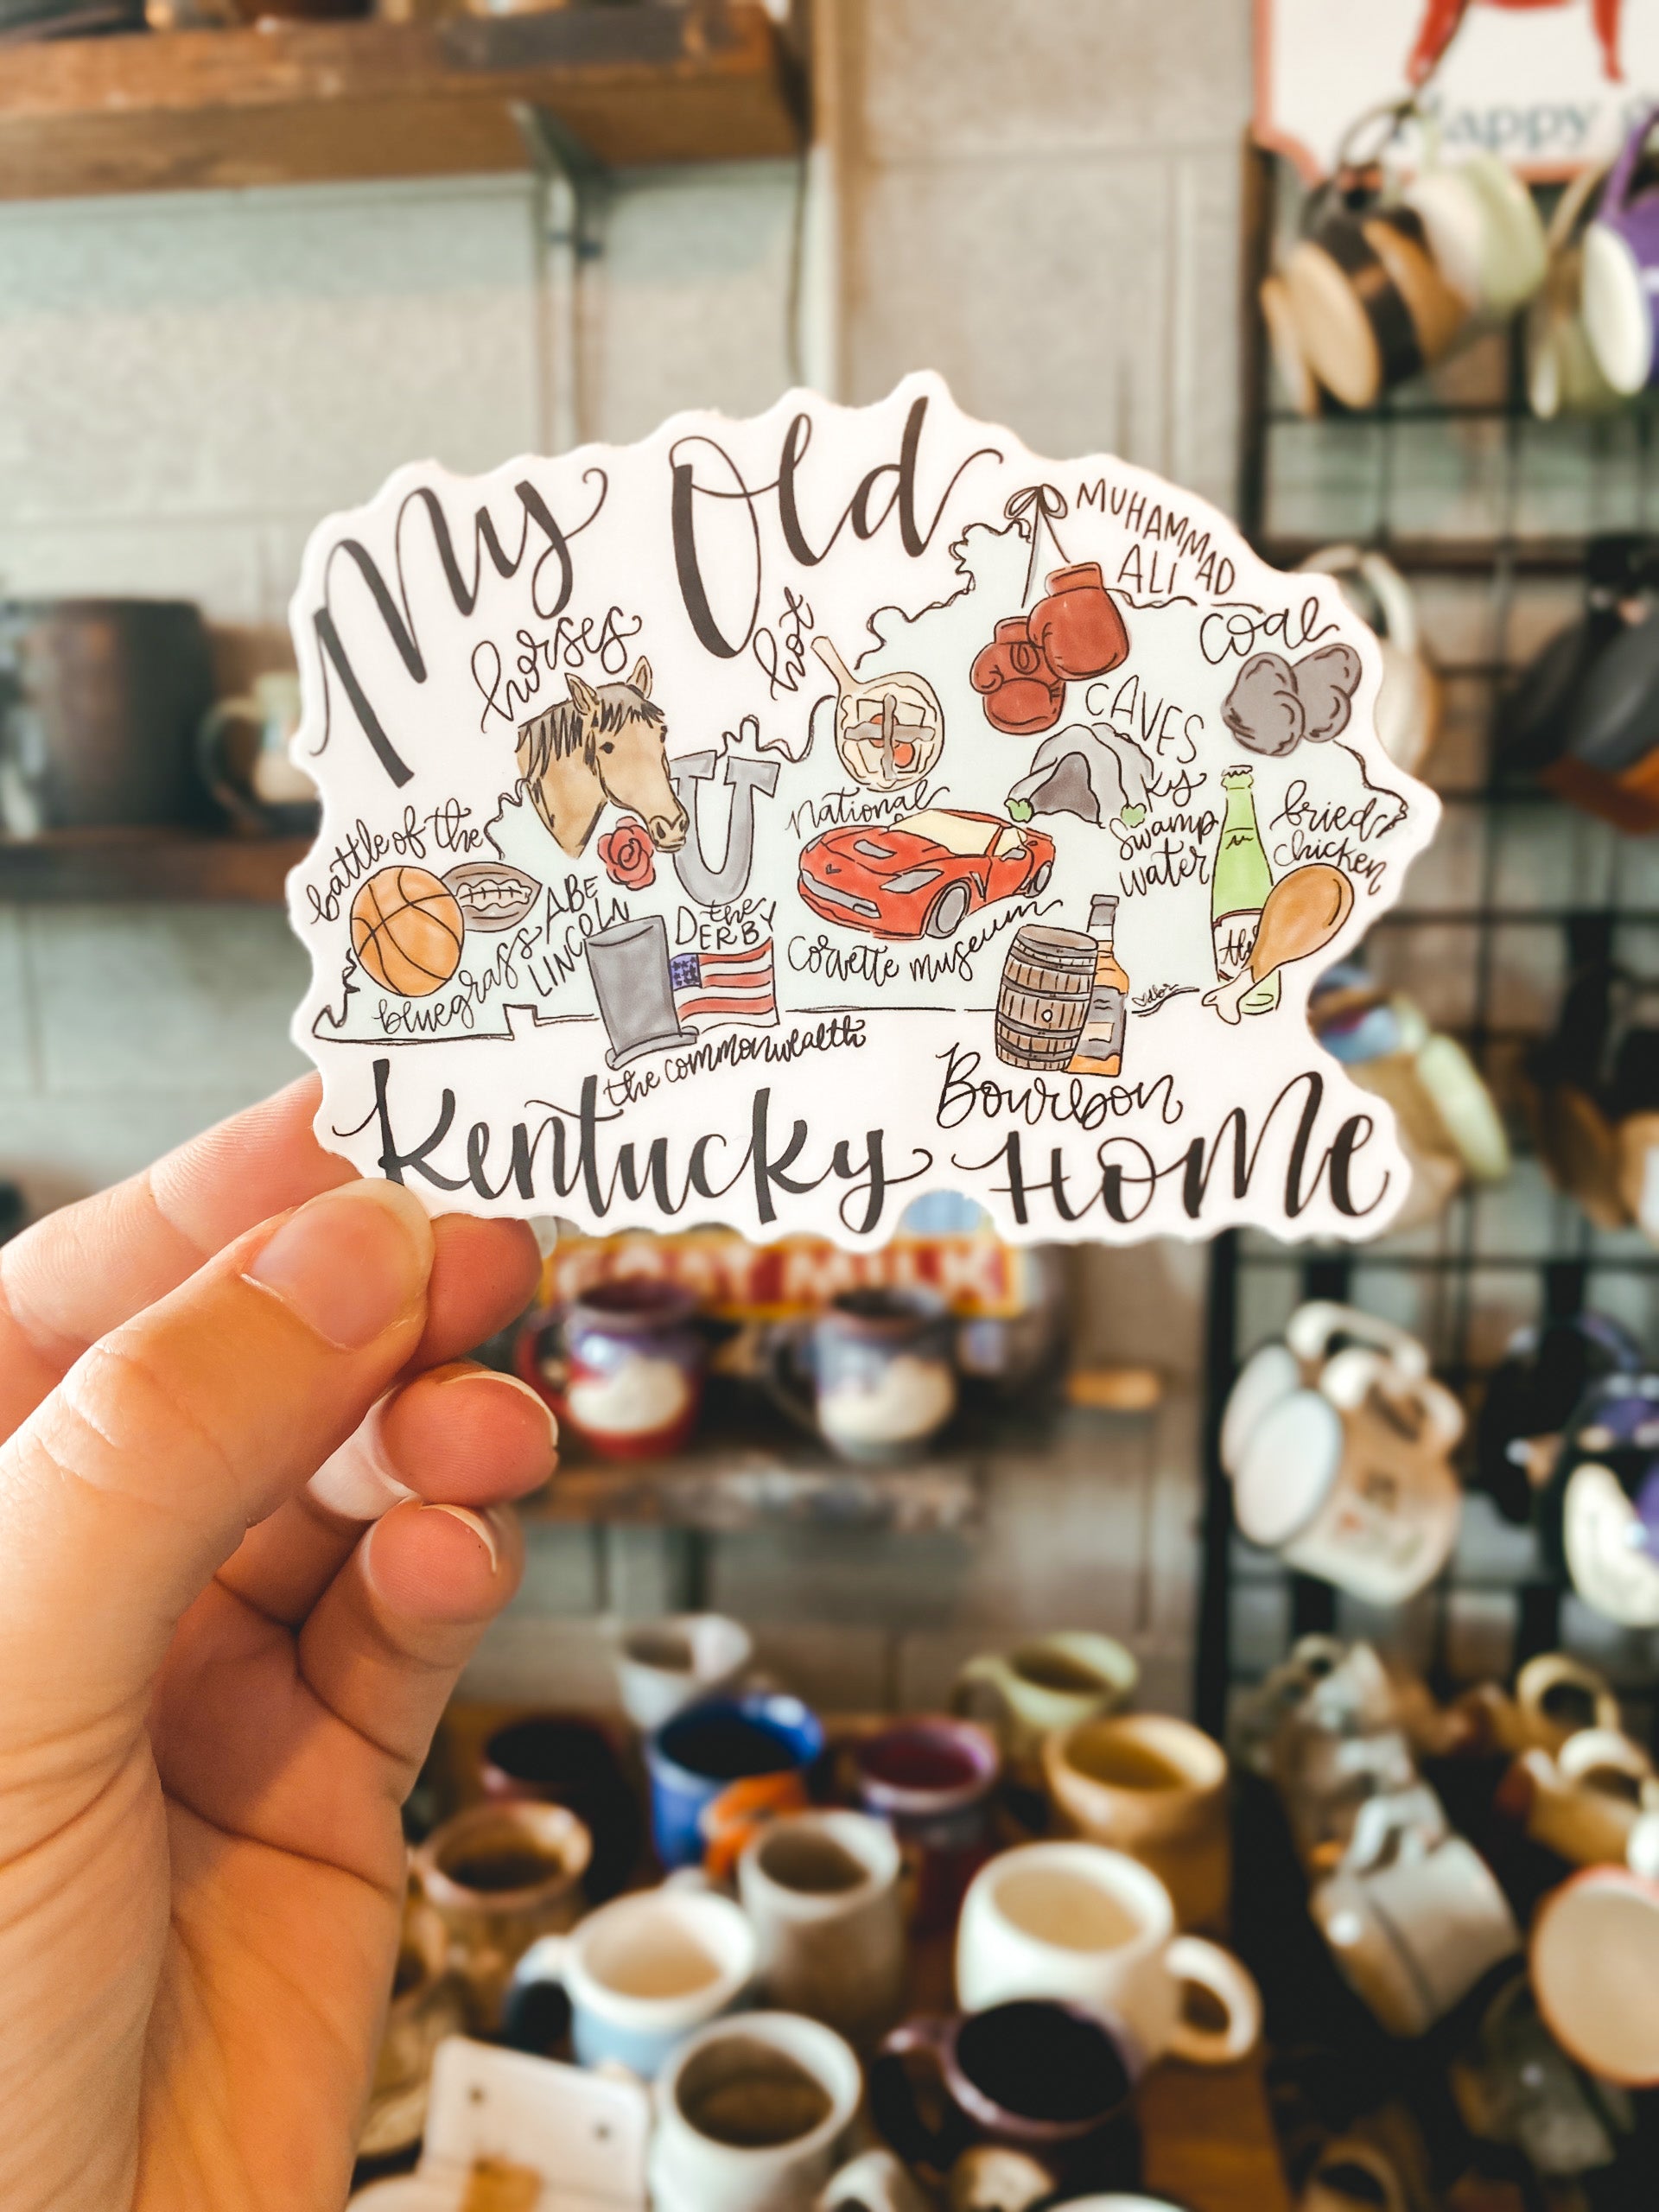 My Old
horses
hot
MUHAMMAD
ALI
coal
CAVES
battle of the
bluegrass
ABE
LINCOLN
the
DERBY
National
Corvette museum
ky
swamp
water
fried
chicken
the commonwealth
Bourbon
Kentucky Home
MILK